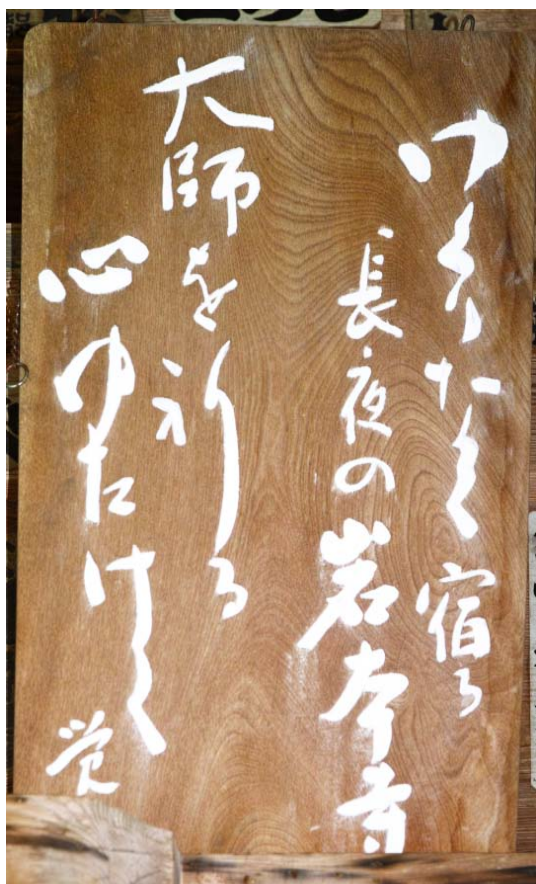 ゆくりなく宿る
長夜の岩本寺
大師を祈る
心ゆたけく
覚